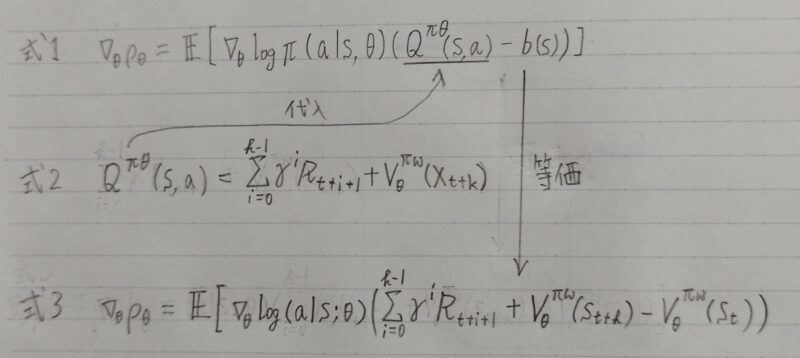 式1 ∇θρθ = 𝔼[∇θ log π(a|s,θ)(Q^πθ(s,a) − b(s))]
代入
式2 Q^πθ(s,a) = Σ_{i=0}^{k-1} γ^i R_{t+i+1} + V_θ^πω(x_{t+k})
等価
式3 ∇θρθ = 𝔼[∇θ log(a|s;θ)(Σ_{i=0}^{k-1} γ^i R_{t+i+1} + V_θ^πω(s_{t+k}) − V_θ^πω(s_t))